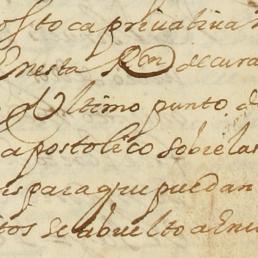 osto ca privativa
En esta Ron de cura
Ultimo punto d
apostolico sobre las
para que puedan
tos se a buelto a En